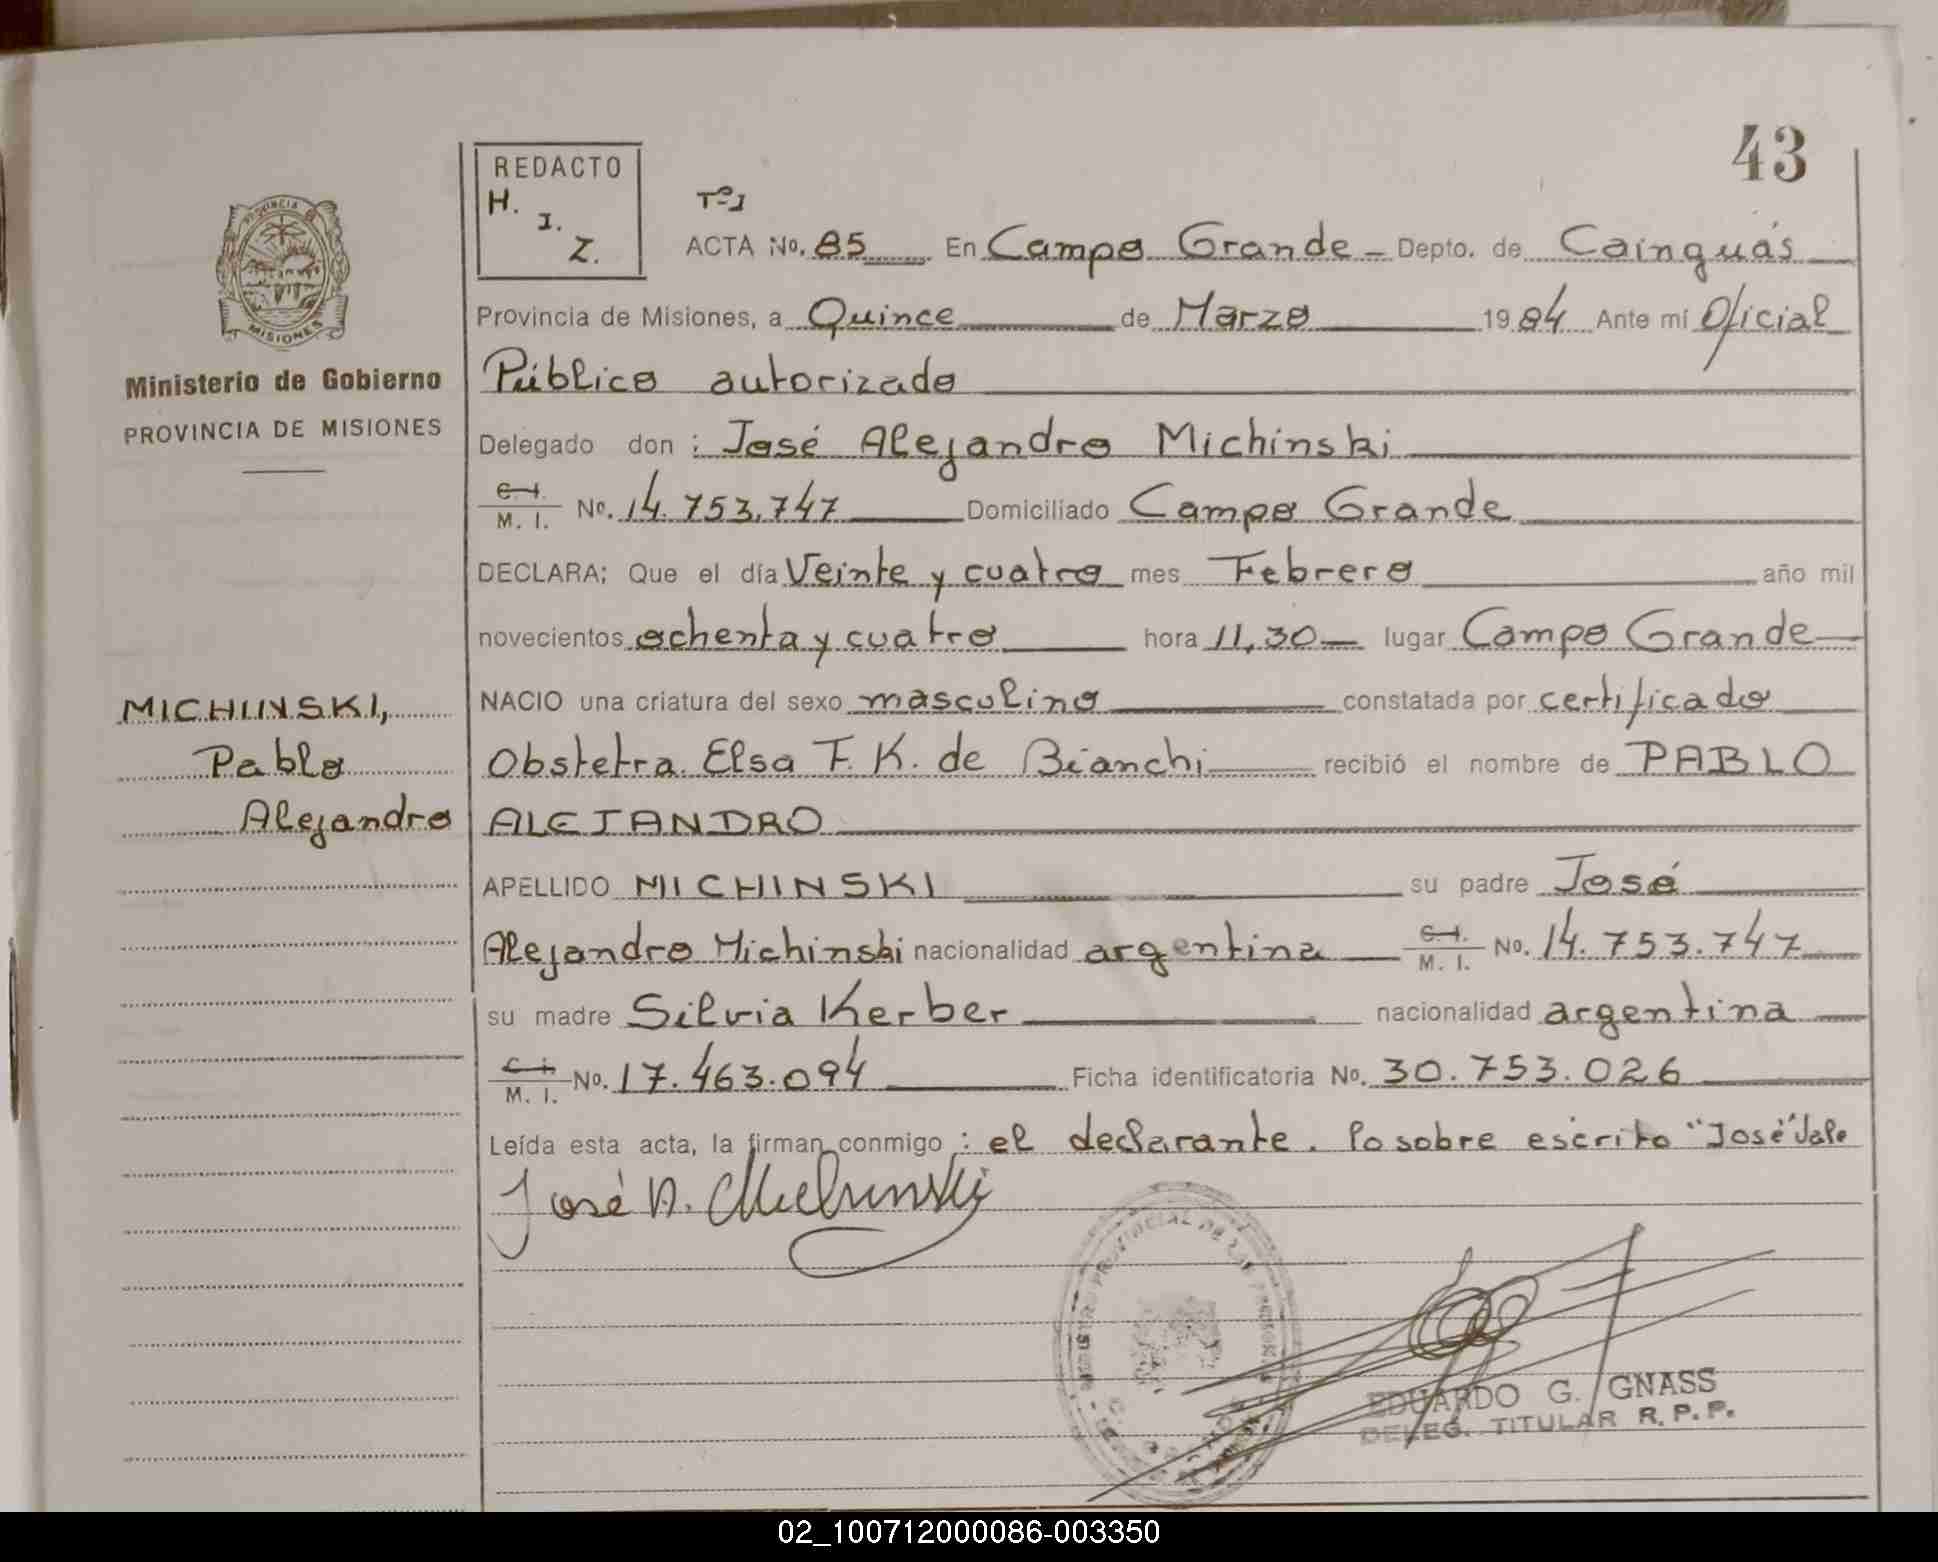 43
REDACTO
H.
I.
Z.
Tº1
ACTA No. 85 En Campo Grande Depto. de Cainguás
Provincia de Misiones, a Quince de Marzo 1984 Ante mí Oficial
Público autorizado
Delegado don : José Alejandro Michinski
C.I. M. I. No. 14.753.747 Domiciliado Campo Grande
DECLARA: Que el día Veinte y cuatro mes Febrero año mil
novecientos ochenta y cuatro hora 11,30 lugar Campo Grande
NACIO una criatura del sexo masculino constatada por certificado
Obstetra Elsa F. K. de Bianchi recibió el nombre de PABLO
ALEJANDRO
APELLIDO MICHINSKI su padre José
Alejandro Michinski nacionalidad argentina C.I. M. I. No. 14.753.747
su madre Silvia Kerber nacionalidad argentina
C.I. M. I. No. 17.463.094 Ficha identificatoria No. 30.753.026
Leída esta acta, la firman conmigo : el declarante. lo sobre escrito "José" Vale
José A. Michinski
PROVINCIA
MISIONES
Ministerio de Gobierno
PROVINCIA DE MISIONES
MICHINSKI,
Pablo
Alejandro
PROVINCIAL DE LAS PERSONAS
EDUARDO G. GNASS
DELEG. TITULAR R. P. P.
02_100712000086-003350